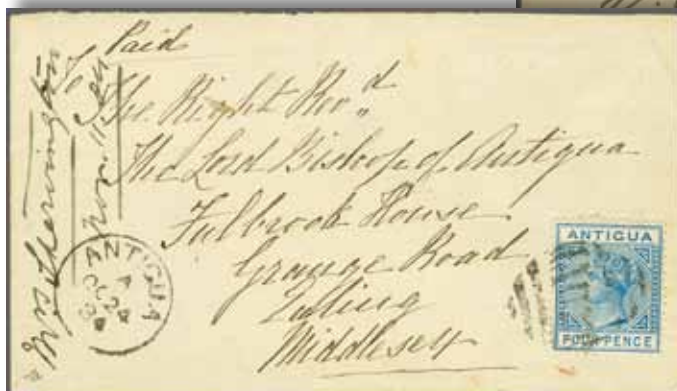 Paid
The Right Rev.d
The Lord Bishop of Antigua
Fulbrook House
Grange Road
Ealing
Middlesex
Mrs Sherrington
Nov. 11
ANTIGUA
OC 24
ANTIGUA
FOUR PENCE